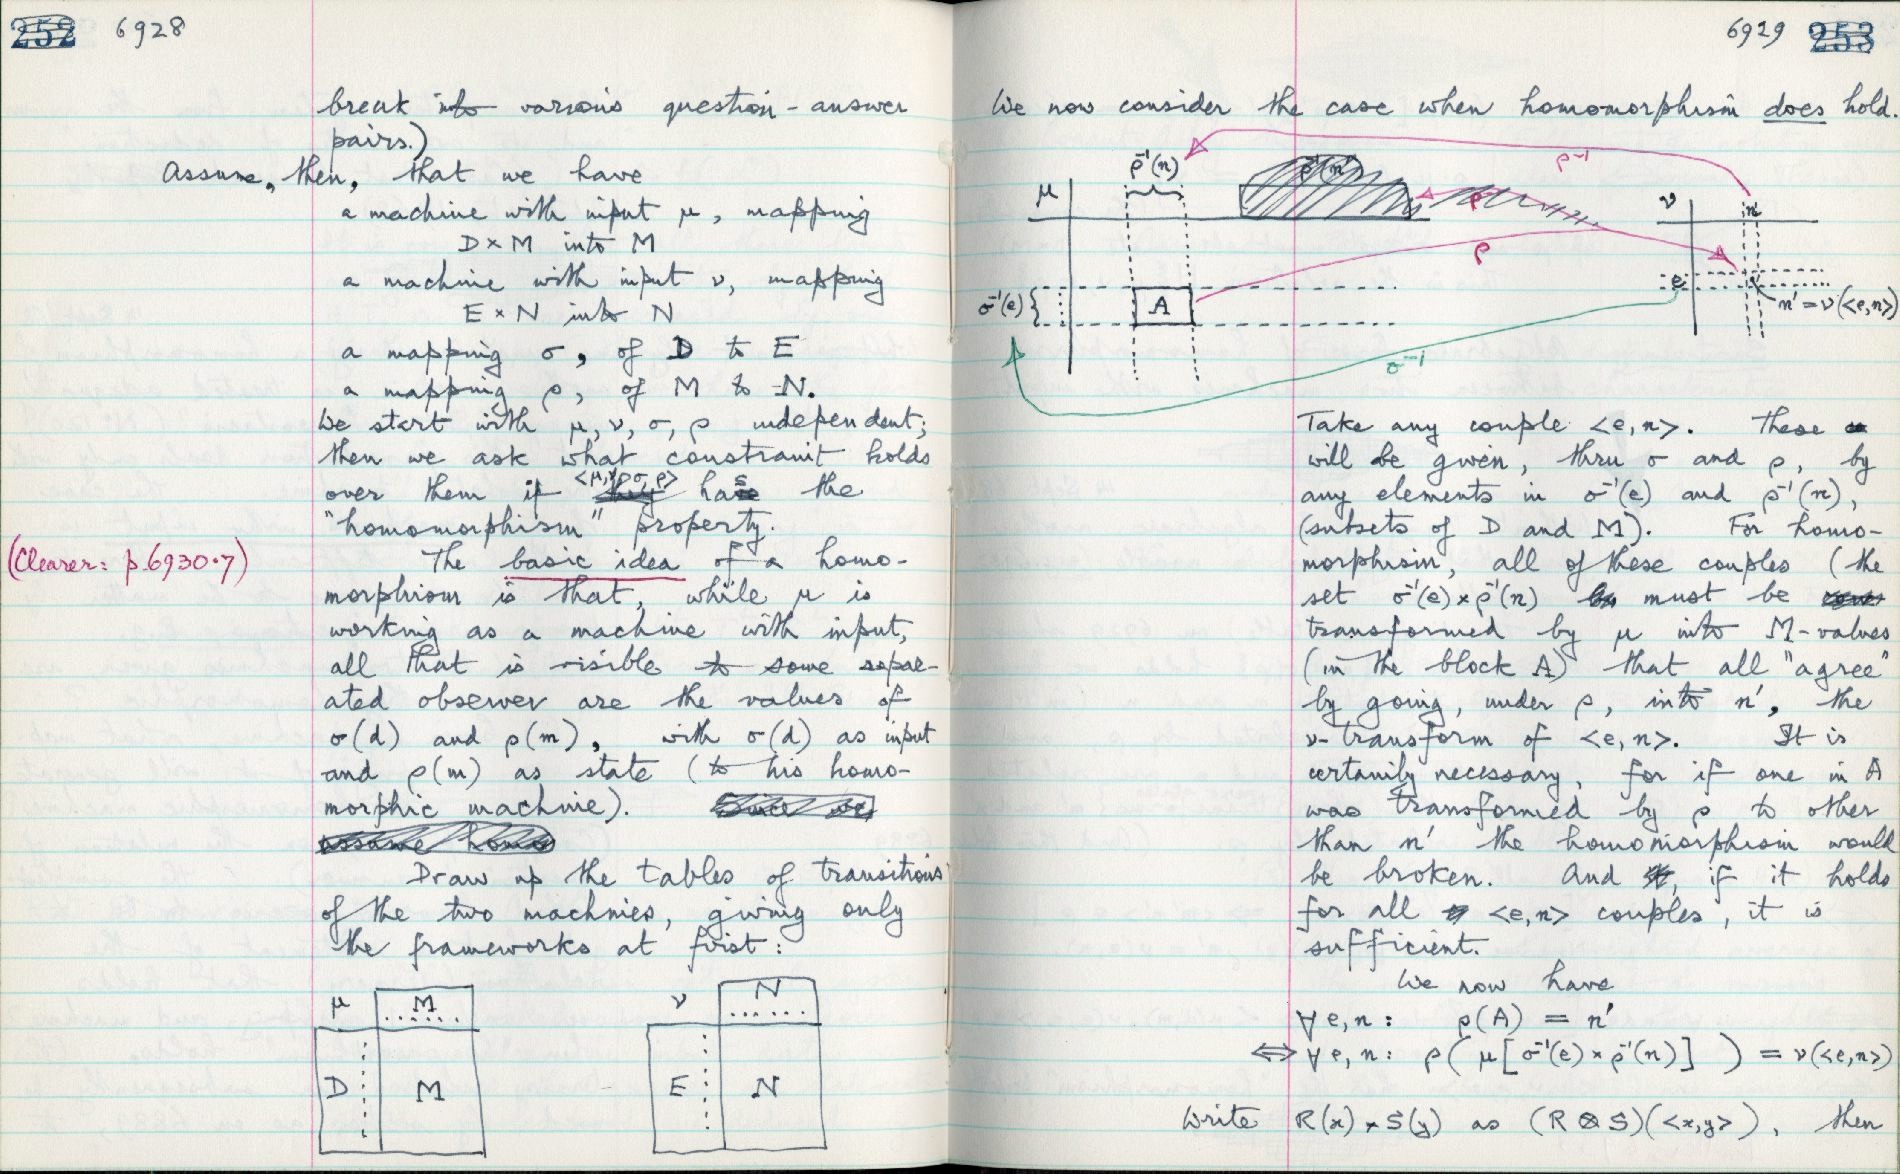 252 6928
break into various question-answer
pairs.)
Assume, then, that we have
a machine with input μ, mapping
D×M into M
a machine with input ν, mapping
E×N into N
a mapping σ, of D to E
a mapping ρ, of M to N.
We start with μ, ν, σ, ρ independent;
then we ask what constraint holds
<μ,ν,σ,ρ>
over them if they has the
"homomorphism" property.
(Clearer: p.6930·7)
The basic idea of a homo-
morphism is that, while μ is
working as a machine with input,
all that is visible to some separ-
ated observer are the values of
σ(d) and ρ(m), with σ(d) as input
and ρ(m) as state (to his homo-
morphic machine). Since we
assume homo
Draw up the tables of transitions
of the two machines, giving only
the frameworks at first:
μ M
D M
ν N
E N
6929 253
We now consider the case when homomorphism does hold.
ρ⁻¹
ρ⁻¹(n) ρ⁻¹(n')
μ ρ ν n
ρ
σ⁻¹(e) { A e n' = ν(<e,n>)
σ⁻¹
Take any couple <e,n>. These
will be given, thru σ and ρ, by
any elements in σ⁻¹(e) and ρ⁻¹(n),
(subsets of D and M). For homo-
morphism, all of these couples (the
set σ⁻¹(e)×ρ⁻¹(n) must be
transformed by μ into M-values
(in the block A) that all "agree"
by going, under ρ, into n', the
ν-transform of <e,n>. It is
certainly necessary, for if one in A
was transformed by ρ to other
than n' the homomorphism would
be broken. And, if it holds
for all <e,n> couples, it is
sufficient.
We now have
∀e,n: ρ(A) = n'
⇔ ∀e,n: ρ( μ[σ⁻¹(e)×ρ⁻¹(n)] ) = ν(<e,n>)
Write R(x)×S(y) as (R⊗S)(<x,y>), then